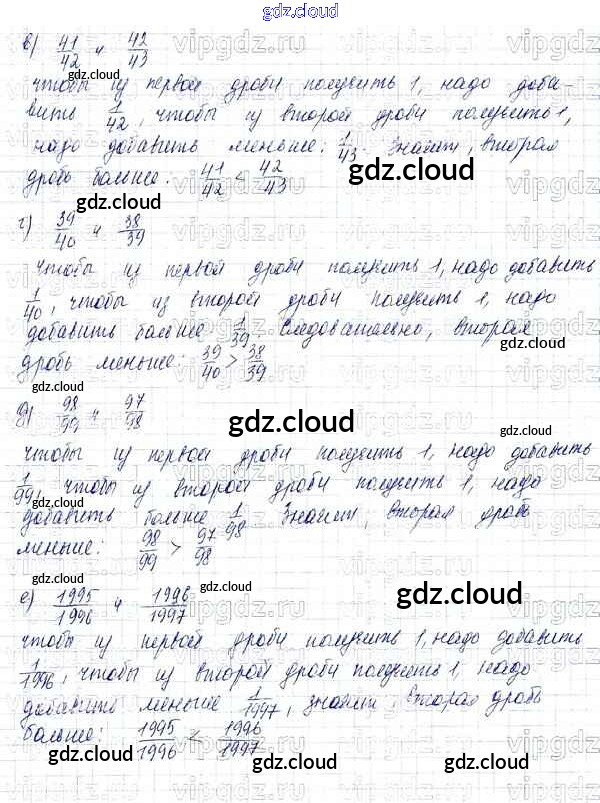 gdz.cloud
в) 41/42 и 42/43
чтобы из первой дроби получить 1, надо доба-
вить 1/42, чтобы из второй дроби получить 1,
надо добавить меньше: 1/43. Значит, вторая
дробь больше: 41/42 < 42/43
г) 39/40 и 38/39
чтобы из первой дроби получить 1, надо добавить
1/40, чтобы из второй дроби получить 1, надо
добавить больше 1/39. Следовательно, вторая
дробь меньше: 39/40 > 38/39
д) 98/99 и 97/98
чтобы из первой дроби получить 1, надо добавить
1/99, чтобы из второй дроби получить 1, надо
добавить больше 1/98. Значит, вторая дробь
меньше: 98/99 > 97/98
е) 1995/1996 и 1996/1997
чтобы из первой дроби получить 1, надо добавить
1/1996, чтобы из второй дроби получить 1, надо
добавить меньше 1/1997, значит вторая дробь
больше: 1995/1996 < 1996/1997